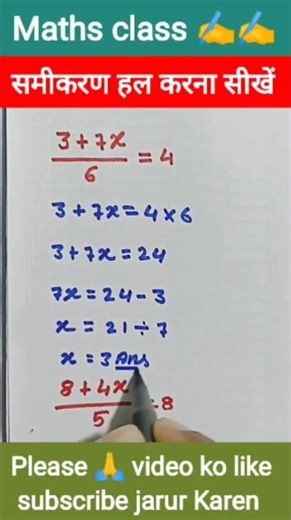 Maths class ✍️✍️
समीकरण हल करना सीखें
3+7x/6 = 4
3+7x=4×6
3+7x=24
7x=24-3
x=21÷7
x=3 Ans
8+4x/5 = 8
Please 🙏 video ko like
subscribe jarur Karen